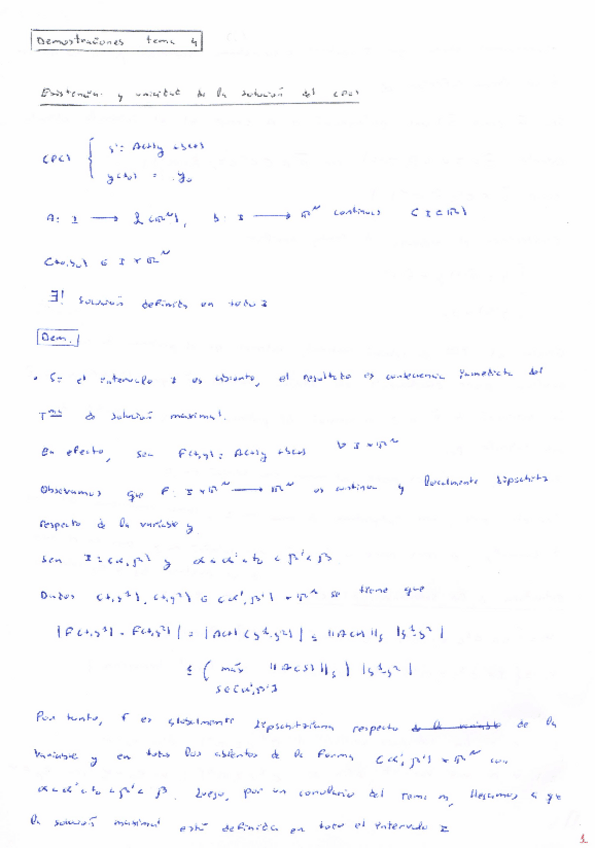 Demostraciones tema 4
Existencia y unicidad de la solución del (PC)
(PC) { y' = A(t)y + b(t)
y(t₀) = y₀
A: I → L(ℝᴺ), b: I → ℝᴺ continuas (I ⊂ ℝ)
(t₀, y₀) ∈ I × ℝᴺ
∃! solución definida en todo I
Dem.
• Si el intervalo I es abierto, el resultado es consecuencia inmediata del
Tᵐᵃ de solución maximal.
En efecto, sea F(t,y) = A(t)y + b(t) I × ℝᴺ
Observamos que F: I × ℝᴺ → ℝᴺ es continua y localmente lipschitz
respecto de la variable y
Sea I = (α, β) y α < α' < t₀ < β' < β
Dados (t, y¹), (t, y²) ∈ (α', β') × ℝᴺ se tiene que
|F(t,y¹) - F(t,y²)| = |A(t)(y¹-y²)| ≤ ||A(t)||ₛ |y¹-y²|
≤ ( máx ||A(s)||ₛ ) |y¹-y²|
s∈[α', β']
Por tanto, F es globalmente lipschitziana respecto de la variable de la
variable y en todos los abiertos de la forma (α', β') × ℝᴺ con
α < α' < t₀ < β' < β. Luego, por un corolario del, llegamos a que
la solución maximal está definida en todo el intervalo I
1